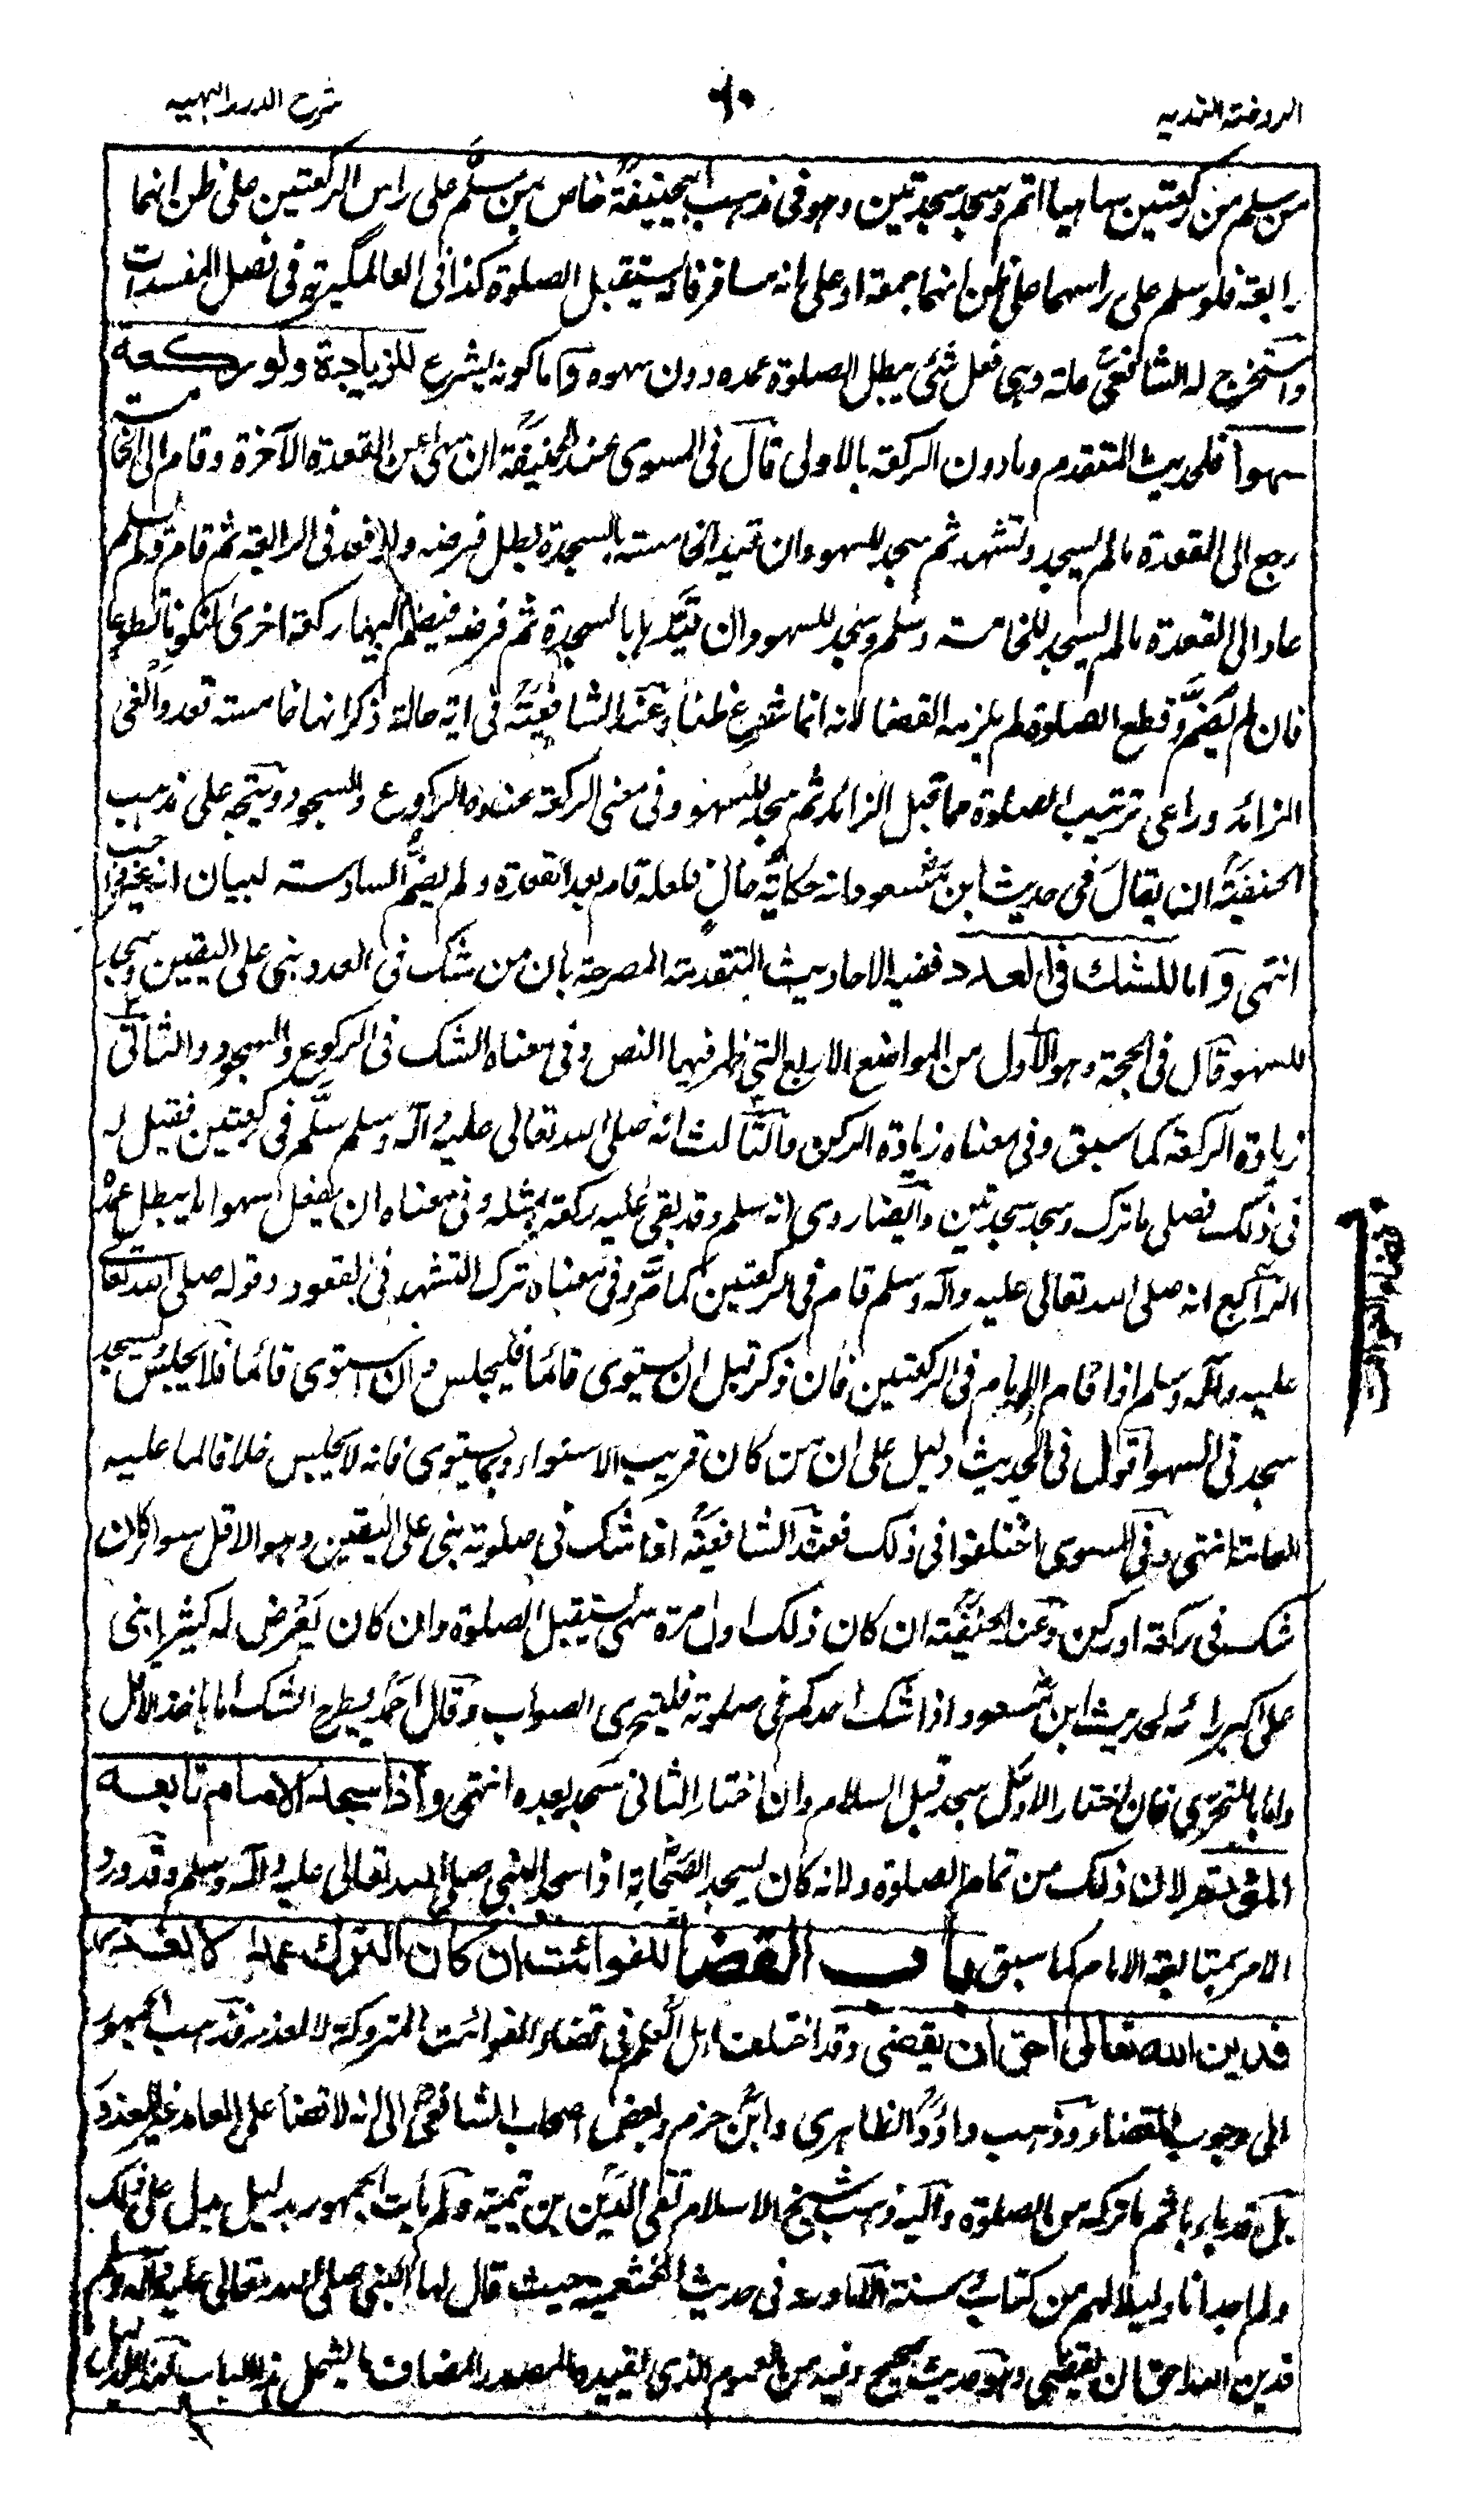 الروضة الندية
٩٠
شرح الدرر البهية
من سلم من ركعتين ساهيا اتم وسجد سجدتين وهو فى مذهب ابيحنيفة خاص بمن سلم على راس الركعتين على ظن انها
رابعة فلو سلم على راسهما على ظن انها جمعة او على انه مسافر فانه يستقبل الصلوة كذا فى العالمگيرية فى فصل المفسدات
واستخرج له الشافعى علة وهى فعل شئ يبطل الصلوة عمده دون سهوه واما كونه يشرع للزيادة ولو ركعة
سهوا فلحديث المتقدم وما دون الركعة بالاولى قال فى المسوى عند الحنيفة ان سهى عن القعدة الآخرة وقام الى الخامسة
رجع الى القعدة ما لم يسجد وتشهد ثم سجد للسهو وان قيد الخامسة بالسجدة بطل فرضه ولو قعد فى الرابعة ثم قام ولم يسلم
عاد الى القعدة ما لم يسجد للخامسة وسلم وسجد للسهو وان قيدها بالسجدة ثم فرضه فيضم اليها ركعة اخرى لتكونا تطوعا
فان لم يضم وقطع الصلوة لم يلزمه القضا لانه انما شرع ظنا وعند الشافعية فى اية حالة ذكر انها خامسة قعد والغى
الزائد وراعى ترتيب الصلوة مما قبل الزائد ثم سجد للسهو وفى معنى الركعة عنده الركوع والسجود ويتجه على مذهب
الحنفية ان يقال فى حديث ابن مسعود انه حكاية حال فلعله قام بعد القعدة ولم يضم السادسة لبيان انه غير واجب
انتهى واما للشك فى العدد ففيه الاحاديث المتقدمة المصرحة بان من شك فى العدد بنى على اليقين وسجد
للسهو قال فى الحجة وهو الاول من المواضع الاربع التى ظهر فيها النص وفى معناه الشك فى الركوع والسجود والثانى
زيادة الركعة كما سبق وفى معناه زيادة الركن والثالث انه صلى الله تعالى عليه وآله وسلم سلم فى ركعتين فقيل له
فى ذلك فصلى ما ترك وسجد سجدتين وايضا روى انه سلم وقد بقى عليه ركعة بمثله وفى معناه ان يفعل سهوا ما يبطل عمده
الرابع انه صلى الله تعالى عليه وآله وسلم قام فى الركعتين كما مر وفى معناه ترك التشهد فى القعود وقوله صلى الله تعالى
عليه وآله وسلم اذا قام الامام فى الركعتين فان ذكر قبل ان يستوى قائما فليجلس وان استوى قائما فلا يجلس ويسجد
سجدتى السهو اقول فى الحديث دليل على ان من كان قريب الاستواء ولما يستوى فانه لا يجلس خلافا لما عليه
العامة انتهى وفى المسوى اختلفوا فى ذلك فعند الشافعية اذا شك فى صلوته بنى على اليقين وهو الاقل سوا كان
شك فى ركعة او ركن وعند الحنفية ان كان ذلك اول مرة سهى يستقبل الصلوة وان كان يعرض له كثيرا بنى
على اكبر رائه لحديث ابن مسعود اذا شك احدكم فى صلوته فليتحرى الصواب وقال احمد يطرح الشك اما باخذ الاقل
واما بالتحرى فان اختار الاول سجد قبل السلام وان اختار الثانى سجد بعده انتهى واذا سجد الامام تابعه
المؤتم لان ذلك من تمام الصلوة ولانه كان يسجد الصحابة اذا سجد النبى صلى الله تعالى عليه وآله وسلم وقد ورد
الامر بمتابعة الامام كما سبق باب القضا للفوائت ان كان الترك عمدا لا لعذر
فدين الله تعالى احق ان يقضى وقد اختلف اهل العلم فى قضاء الفوائت المتروكة لا لعذر فذهب الجمهور
الى وجوب القضاء وذهب داؤد الظاهرى وابن حزم وبعض اصحاب الشافعى الى انه لا قضا على العامد غير المعذور
بل قد باء باثم ما تركه من الصلوة واليه ذهب شيخ الاسلام تقى الدين بن تيمية ولم يات الجمهور بدليل يدل على ذلك
ولم اجد انا دليلا لهم من كتاب وسنة الا ما ورد فى حديث الخثعمية حيث قال لها النبى صلى الله تعالى عليه وآله وسلم
فدين الله احق ان يقضى وهو حديث صحيح وفيه من العموم الذى يفيده المصدر المضاف ما يشمل هذا الباب فهذا الدليل